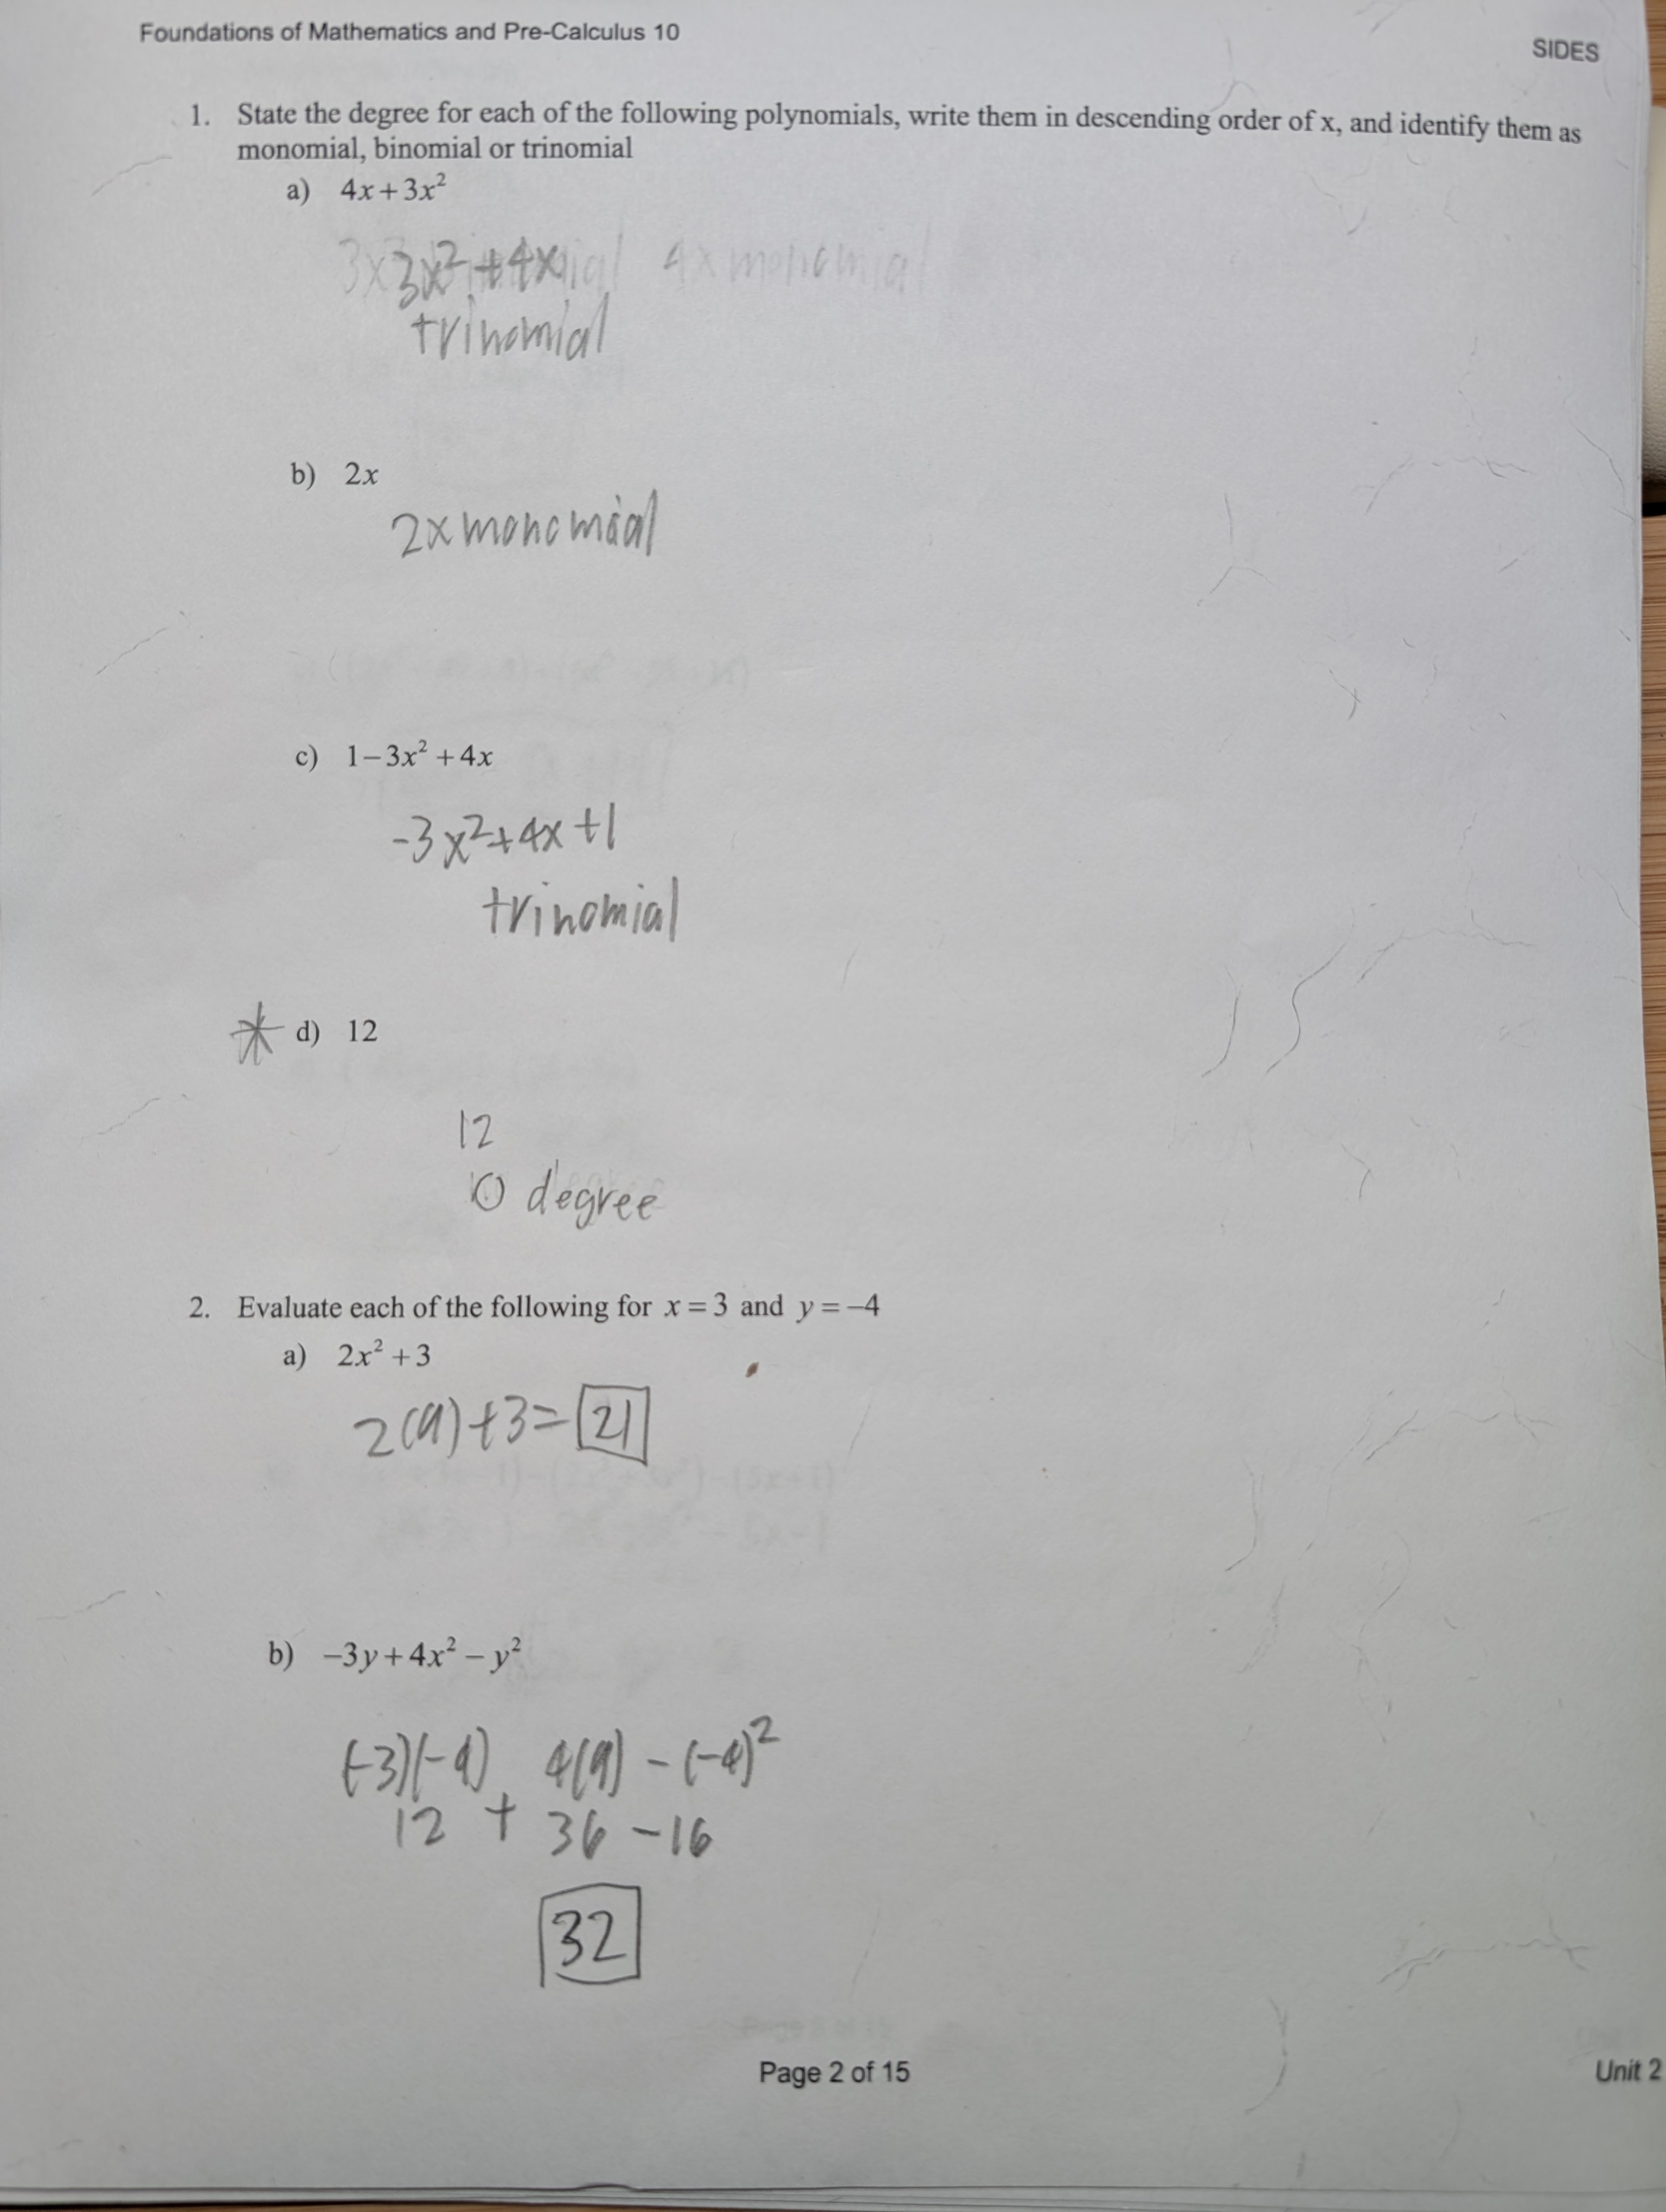 Foundations of Mathematics and Pre-Calculus 10
SIDES
1. State the degree for each of the following polynomials, write them in descending order of x, and identify them as
monomial, binomial or trinomial
a) 4x+3x²
3x²+4x
4x monomial
trinomial
b) 2x
2x monomial
c) 1−3x²+4x
-3x²+4x+1
trinomial
d) 12
12
0 degree
2. Evaluate each of the following for x=3 and y=−4
a) 2x²+3
2(9)+3=21
b) −3y+4x²−y²
(-3)(-4) 4(9) - (-4)²
12 + 36 - 16
32
Page 2 of 15
Unit 2